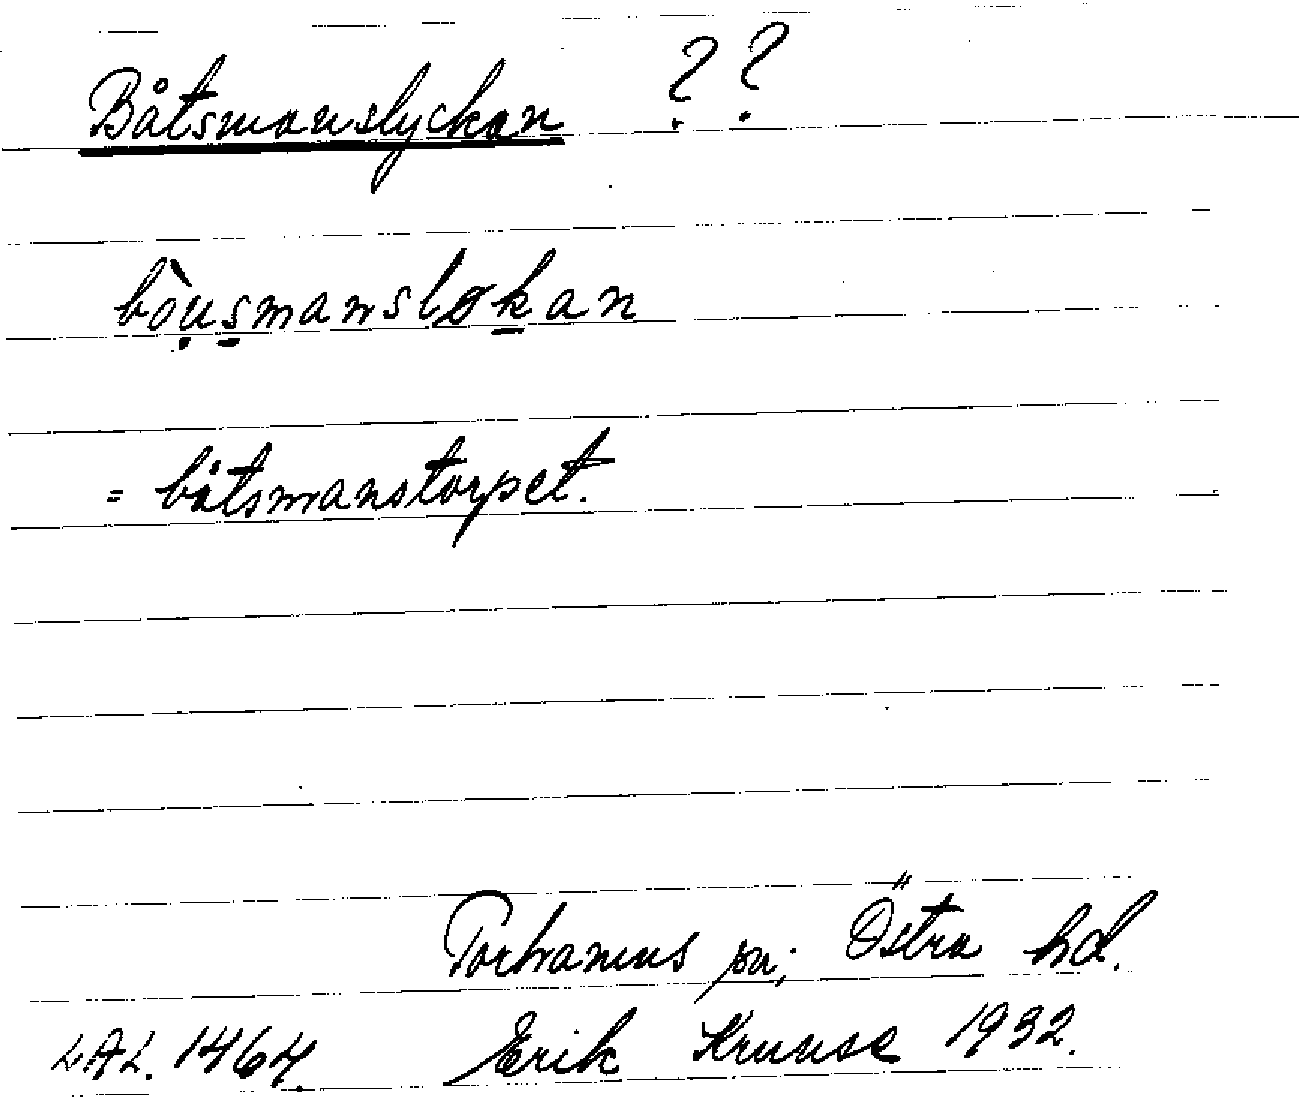 Båtsmanslyckan ??
bòu̩s̠mansløk̠an
= båtsmanstorpet.
Torhamns sn; Östra hd.
LAL. 1464. Erik Kruuse 1932.